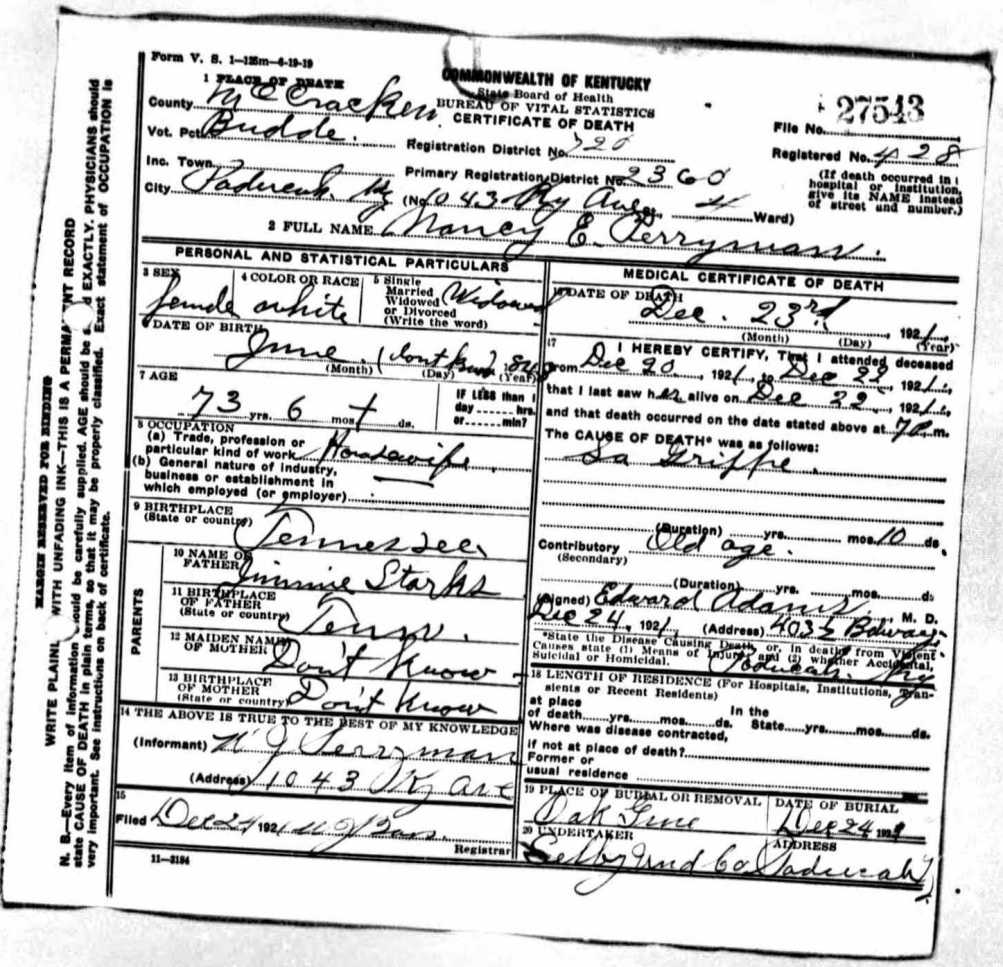 Form V. S. 1—125m—6-19-19
COMMONWEALTH OF KENTUCKY
State Board of Health
BUREAU OF VITAL STATISTICS
CERTIFICATE OF DEATH
1 PLACE OF DEATH
County McCracken
Vot. Pct. Budde.
Inc. Town
City Paducah, Ky
Registration District No. 720
Primary Registration District No. 2360
(No. 1043 Ky Ave, 4 Ward)
File No. 27543
Registered No. 428
(If death occurred in
hospital or institution,
give its NAME instead
of street and number.)
2 FULL NAME Nancy E. Perryman.
PERSONAL AND STATISTICAL PARTICULARS
3 SEX
female
4 COLOR OR RACE
white
5 Single
Married
Widowed
or Divorced
(Write the word)
Widowed
6 DATE OF BIRTH
June (dont know) 1848
(Month) (Day) (Year)
7 AGE
73 yrs. 6 mos. ds.
IF LESS than 1
day ...... hrs.
or ...... min?
8 OCCUPATION
(a) Trade, profession or
particular kind of work Housewife.
(b) General nature of industry,
business or establishment in
which employed (or employer)
9 BIRTHPLACE
(State or country)
Tennessee.
PARENTS
10 NAME OF
FATHER
Jimmie Starks
11 BIRTHPLACE
OF FATHER
(State or country)
Tenn.
12 MAIDEN NAME
OF MOTHER
Don't Know
13 BIRTHPLACE
OF MOTHER
(State or country)
Don't Know
14 THE ABOVE IS TRUE TO THE BEST OF MY KNOWLEDGE
(Informant) W J Perryman
(Address) 1043 Ky Ave
15
Filed Dec 24 1921
Registrar
11—3184
MEDICAL CERTIFICATE OF DEATH
16 DATE OF DEATH
Dec. 23rd, 1921
(Month) (Day) (Year)
17 I HEREBY CERTIFY, That I attended deceased
from Dec 20, 1921, to Dec 22, 1921,
that I last saw her alive on Dec 22, 1921,
and that death occurred on the date stated above at 7 P.m.
The CAUSE OF DEATH* was as follows:
La Grippe.
(Duration) yrs. mos. 10 ds.
Contributory Old age.
(Secondary)
(Duration) yrs. mos. ds.
(Signed) Edward Adams, M. D.
Dec 24, 1921 (Address) 403½ Bdway
Paducah, Ky
*State the Disease Causing Death, or, in deaths from Violent
Causes state (1) Means of Injury; and (2) whether Accidental,
Suicidal or Homicidal.
18 LENGTH OF RESIDENCE (For Hospitals, Institutions, Tran-
sients or Recent Residents)
at place In the
of death......yrs......mos......ds. State......yrs......mos......ds.
Where was disease contracted,
if not at place of death?
Former or
usual residence
19 PLACE OF BURIAL OR REMOVAL
Oak Grove
DATE OF BURIAL
Dec 24 1921
20 UNDERTAKER
ADDRESS
Paducah
MARGIN RESERVED FOR BINDING
WRITE PLAINLY WITH UNFADING INK—THIS IS A PERMANENT RECORD
N. B.—Every item of information should be carefully supplied. AGE should be EXACTLY. PHYSICIANS should
state CAUSE OF DEATH in plain terms, so that it may be properly classified. Exact statement of OCCUPATION is
very important. See instructions on back of certificate.